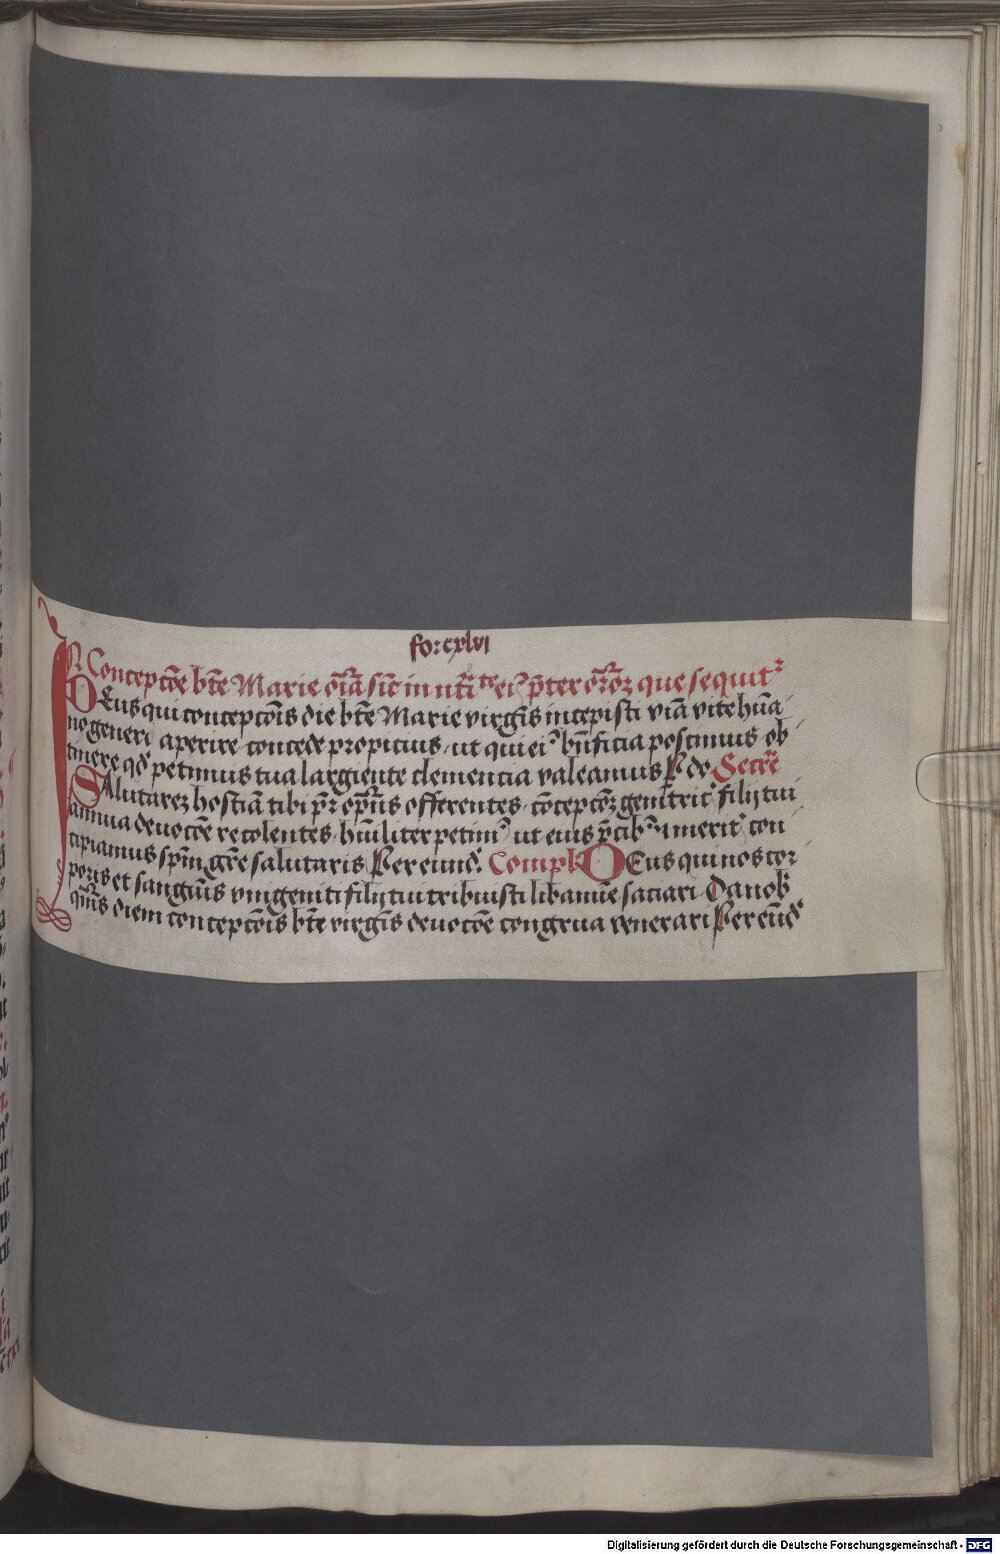 fo: cxlvi
IN Concepcõe bt̃e Marie om̃ia sic̃ in nt̃itte eiꝰ p̃ter or̃oꝝ que sequit᷑
DEus qui concepcõis die bt̃e Marie virgĩs incepisti viã vite hũa
no generi aperire concede propicius, ut qui eiꝰ bñficia poscimus ob
tinere qd̃ petimus tua largiente clemencia valeamus P do Secr̃e
SAlutareʒ hostiã tibi pr̃ op̃ns offerentes, cõcepcõʒ genitric᷑ filij tui
annua deuocõe recolentes, hũiliter petimꝰ ut eius p̃cibꝰ ⁊ merit᷑ con
cipiamus spm̃ gr̃e salutaris Per eund̃. Compl̃ DEus qui nos cor
poris et sanguĩs vnigeniti filij tui tribuisti libamĩe saciari Da nob̃
qm̃s diem concepcõis bt̃e virgĩs deuocõe congrua venerari Per eũd̃
Digitalisierung gefördert durch die Deutsche Forschungsgemeinschaft - DFG